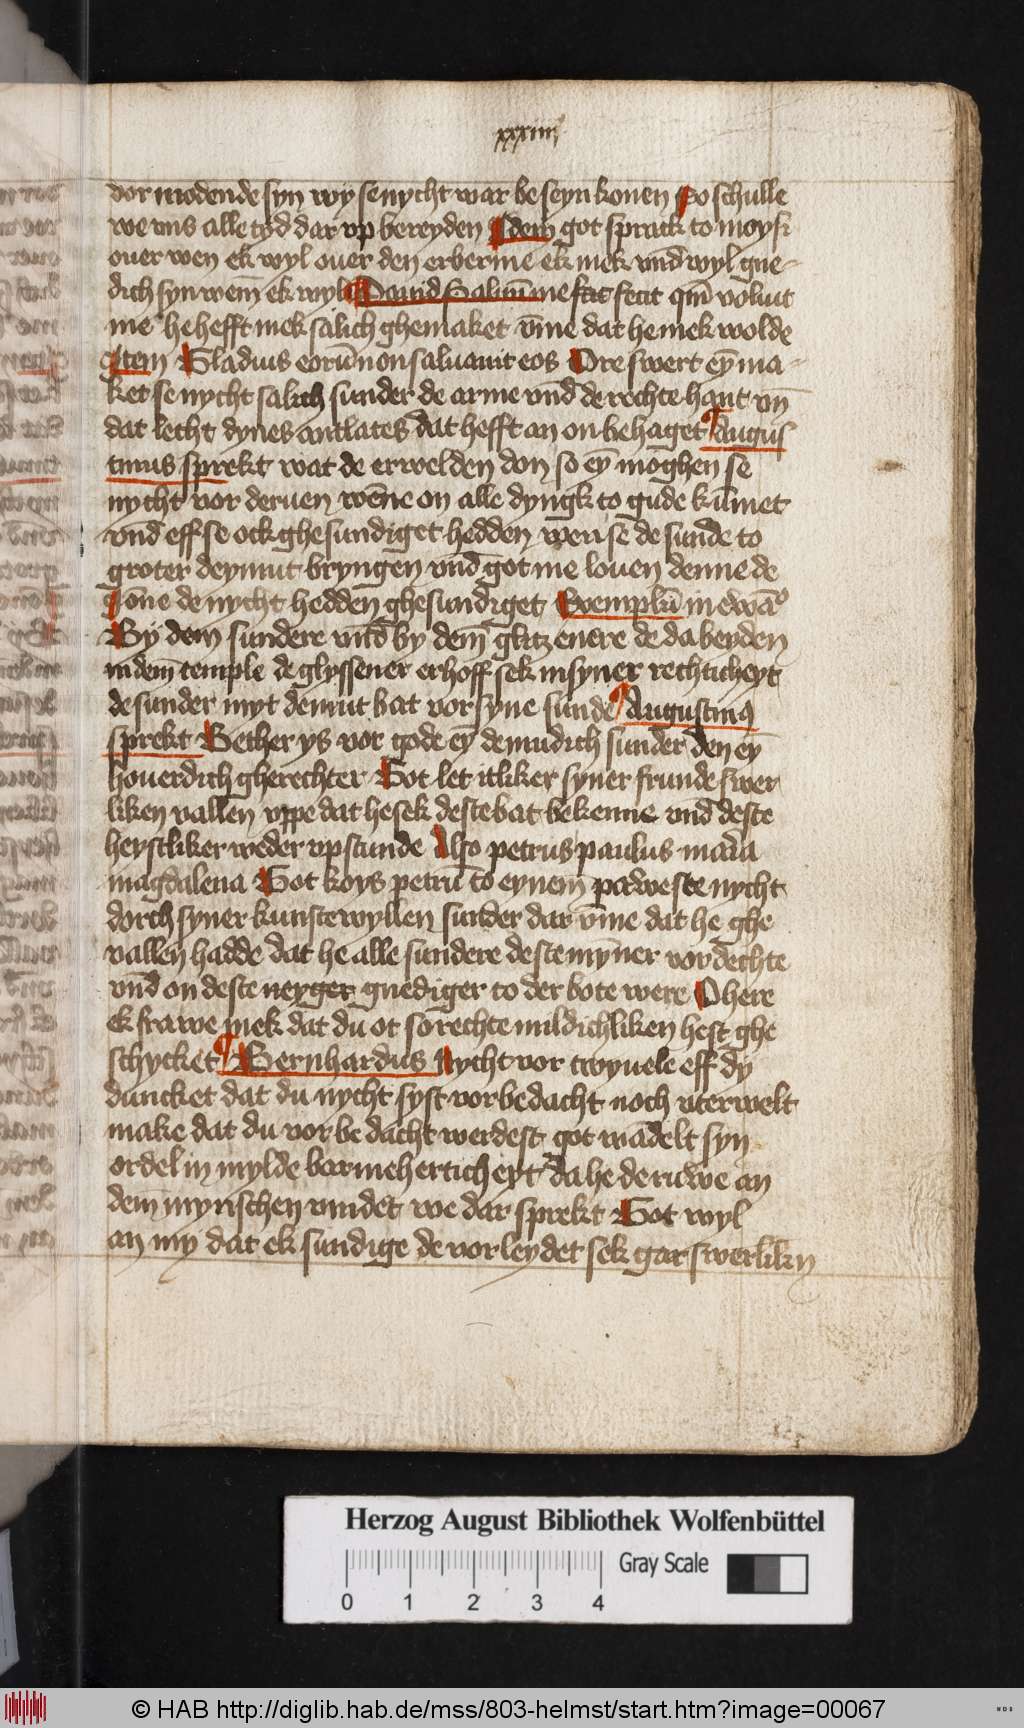 xxxiiij
vormodende syn wy se nycht war be seyn konen So schulle
we vns alle tyd dar vp bereyden Idem got sprack to moysi
ouer wen ek wyl ouer den erberme ek mek vnd wyl gne-
dich syn wem̄ ek wyl Dauid Saluū me fecit qm̄ voluit
me he hefft mek salich ghemaket vm̄e dat he mek wolde
Item Gladius eorū non saluauit eos Ore swert ey̅ ma-
ket se nycht salich sunder de arme vnd de rechte hant vn̄
dat lecht dynes antlates dat hefft an on behaget Augus
tinus sprekt wat de erwelden don so ey̅ moghen se
nycht vor deruen wēne on alle dyngk to gude kūmet
vnd eff se ock ghesundiget hedden wen se de sunde to
groter deymut bryngen vnd got me louen denne de
ione de nycht hedden ghesundiget Exemplū in ewā
By dem sundere vnd by dem glitzenere de da beyden
in dem temple de glyssener erhoff sek in syner rechticheyt
de sunder myt demut bat vor syne sunde Augustinus
sprekt Bether ys vor gode ey̅ demudich sunder den ey̅
houerdich gherechter Got let itliker syner frunde swer
liken vallen vppe dat he sek deste bat bekenne vnd deste
heystliker weder vpstunde Also petrus paulus maria
magdalena Got koys petrū to eynem paweste nycht
dorch syner kunste wyllen sunder dar vm̄e dat he ghe
vallen hadde dat he alle sundere deste myner vordechte
vnd on deste neyger gnediger to der bote were O here
ek frawe mek dat du ot so rechte mildichliken hest ghe
schycket Bernhardus Nycht vor twyuele eff dy
duncket dat du nycht syst vorbedacht noch vterwelt
make dat du vor be dacht werdest got wādelt syn
ordel in mylde barmeherticheyt da he de ruwe an
dem mynschen vindet we dar sprekt Got wyl
an my dat ek sundige de vorleydet sek gar swerliken
Herzog August Bibliothek Wolfenbüttel
Gray Scale
0 1 2 3 4
© HAB http://diglib.hab.de/mss/803-helmst/start.htm?image=00067